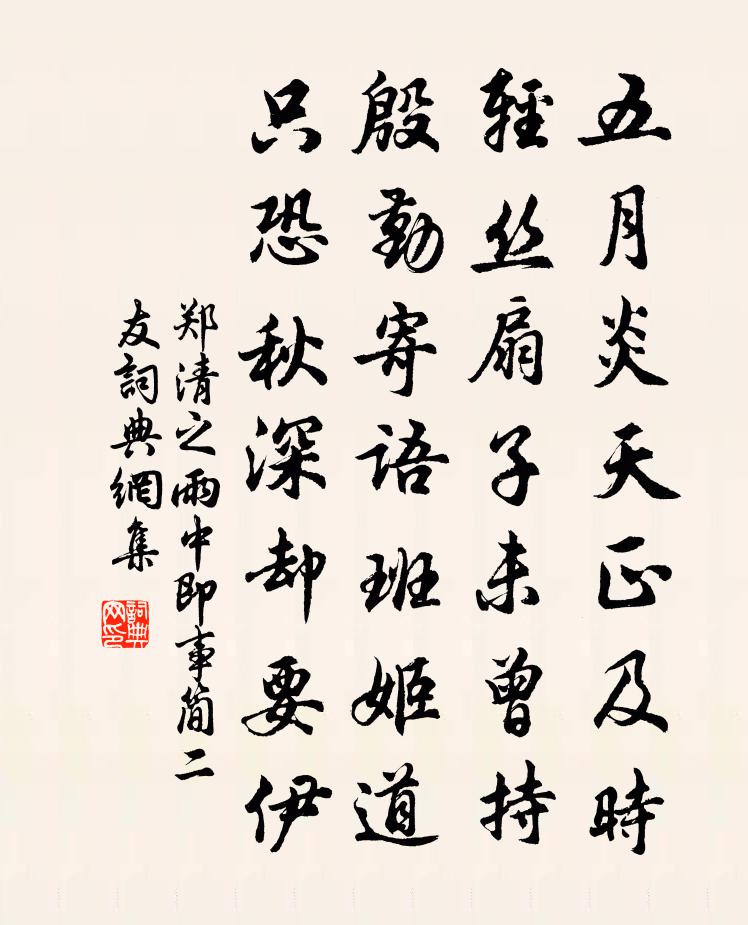 五月炎天正及時
輕丝扇子未曾持
殷勤寄語班姬道
只恐秋深却要伊
郑清之雨中即事简二
友詞典網集
詞典网印